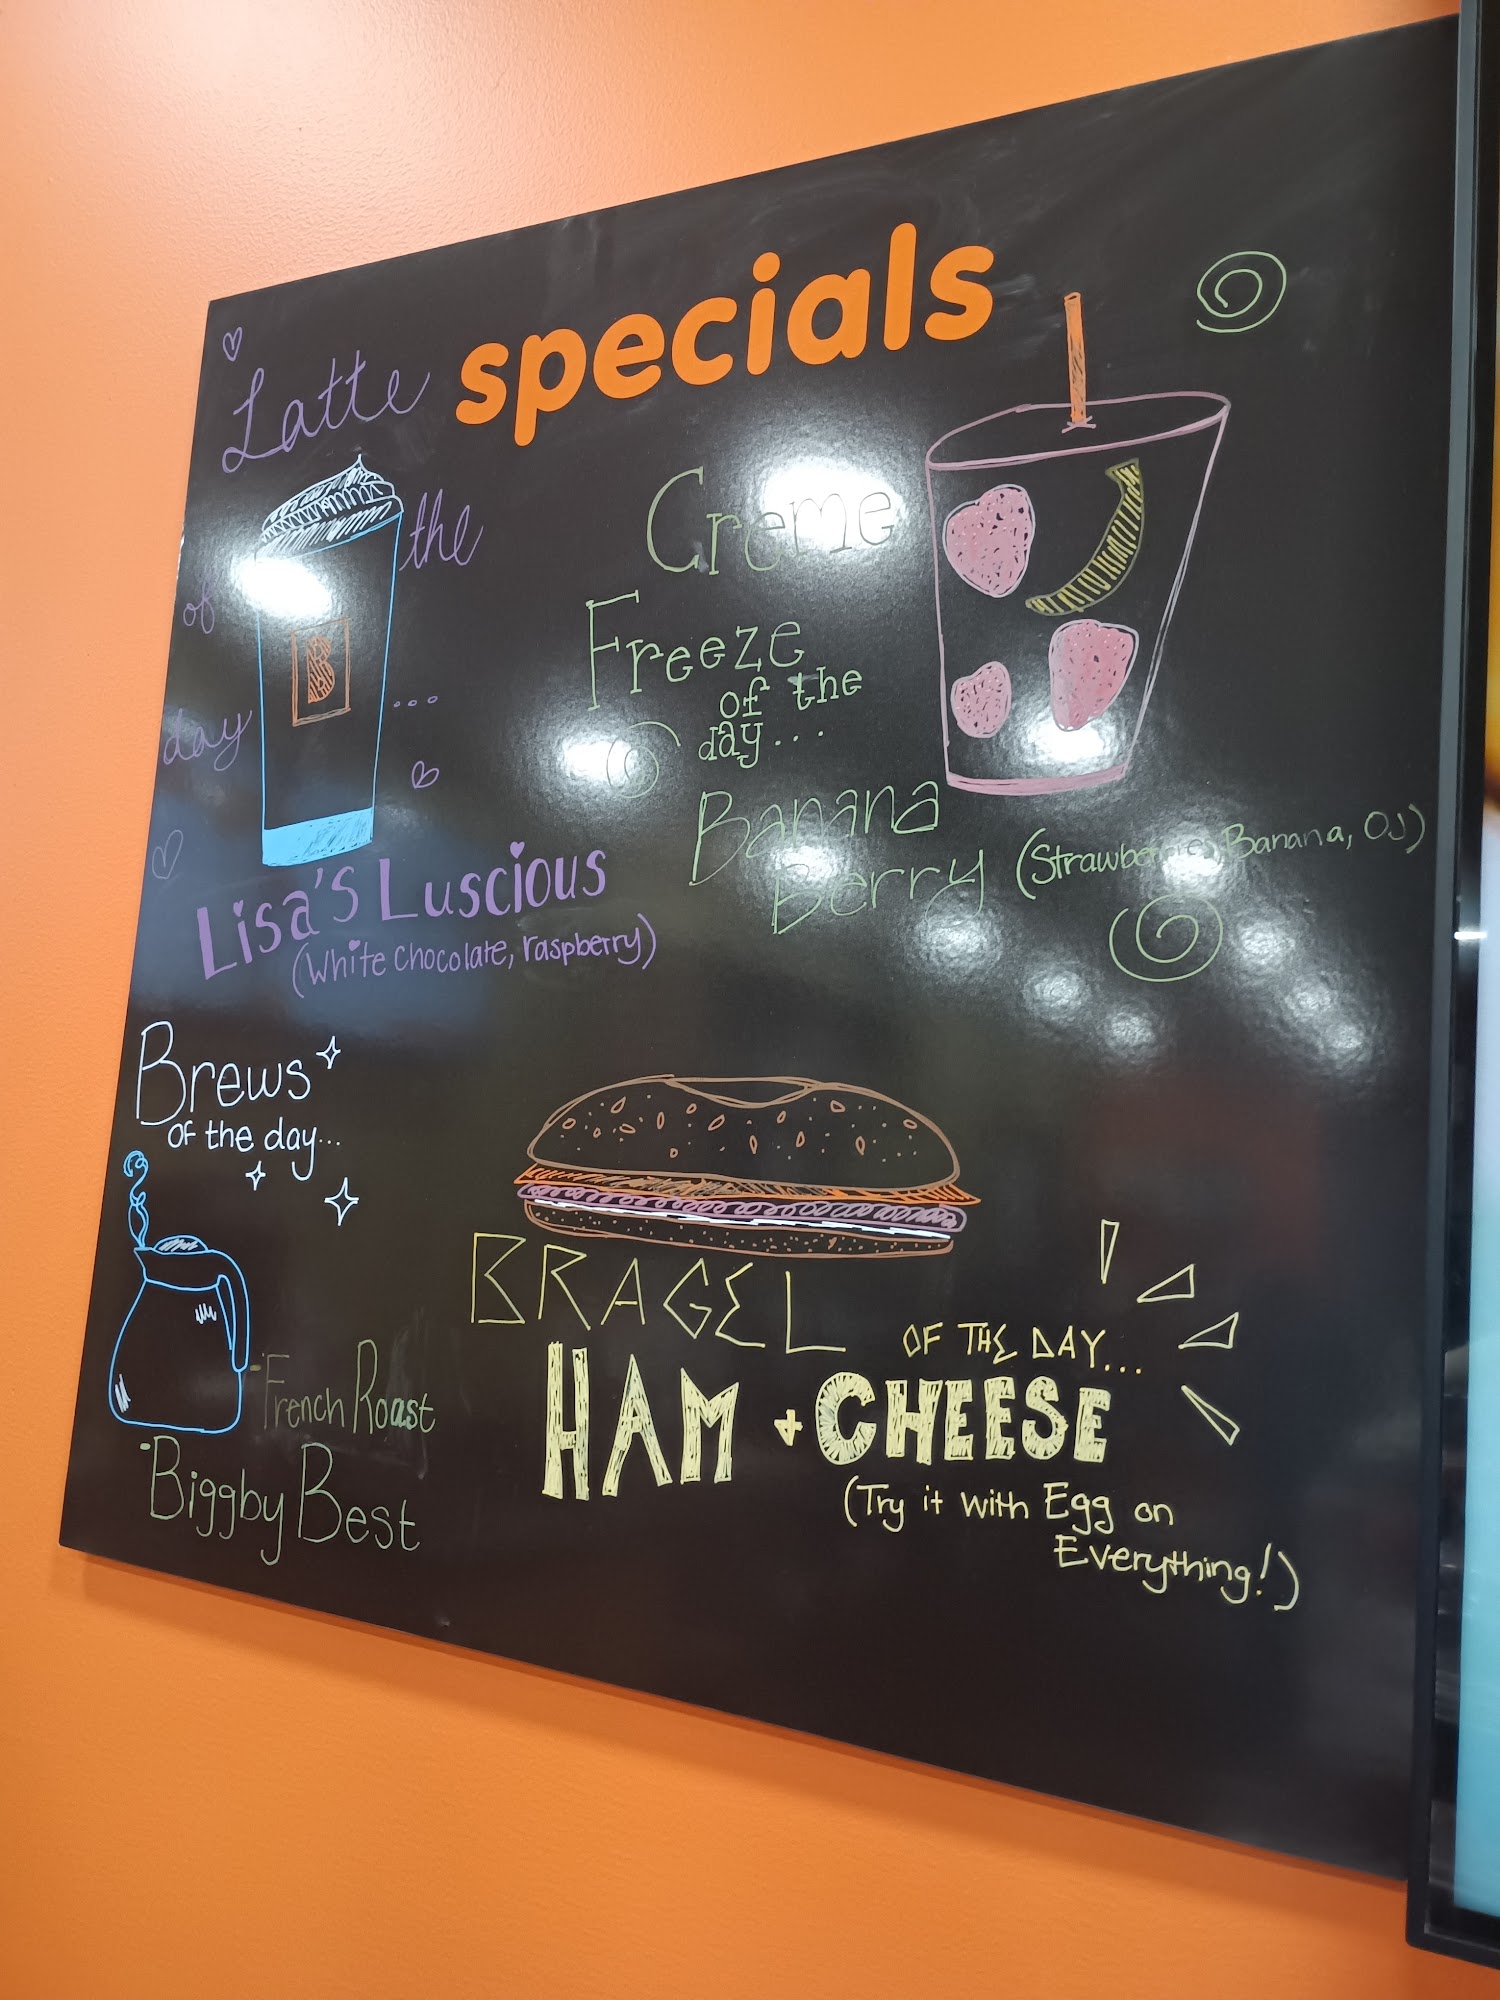 specials
Latte
of the
day ...
B
Lisa's Luscious
(White chocolate, raspberry)
Creme
Freeze
of the
day...
Banana
Berry (Strawberries, Banana, OJ)
Brews
of the day...
-French Roast
-Biggby Best
BRAGEL OF THE DAY...
HAM + CHEESE
(Try it with Egg on
Everything!)